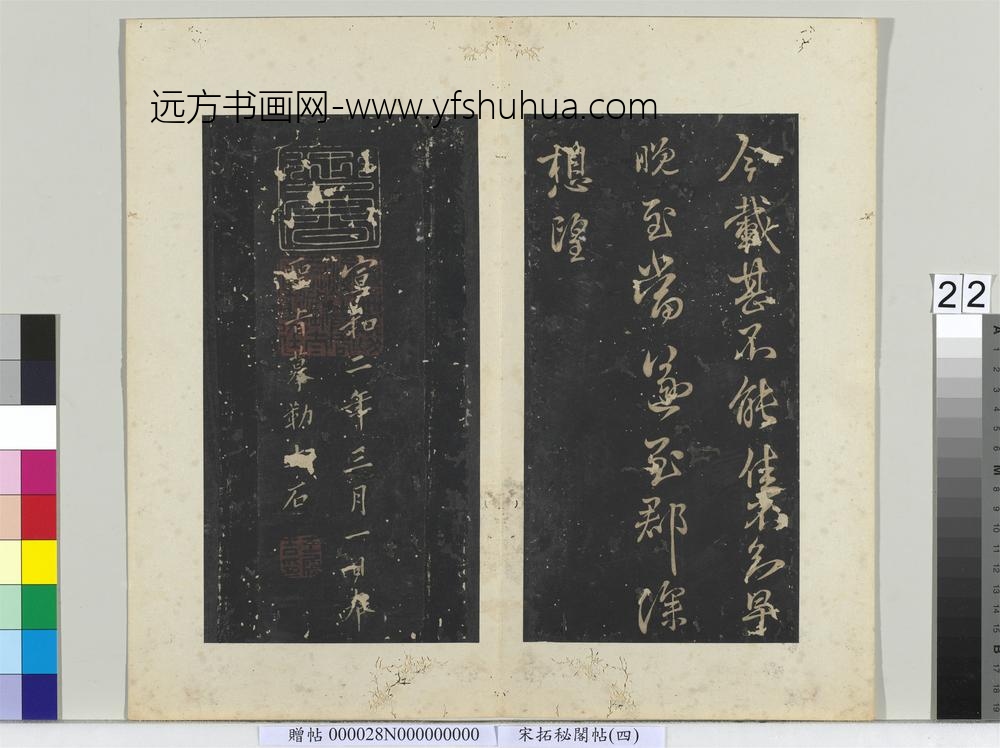 远方书画网-www.yfshuhua.com
今載甚不能佳不知早
晚至當遂至郡深
想望
宣和二年三月一日奉
聖旨摹勒上石
22
A
1
2
3
4
5
6
M
8
9
10
11
12
13
14
15
B
17
18
19
贈帖 000028N000000000
宋拓秘閣帖(四)